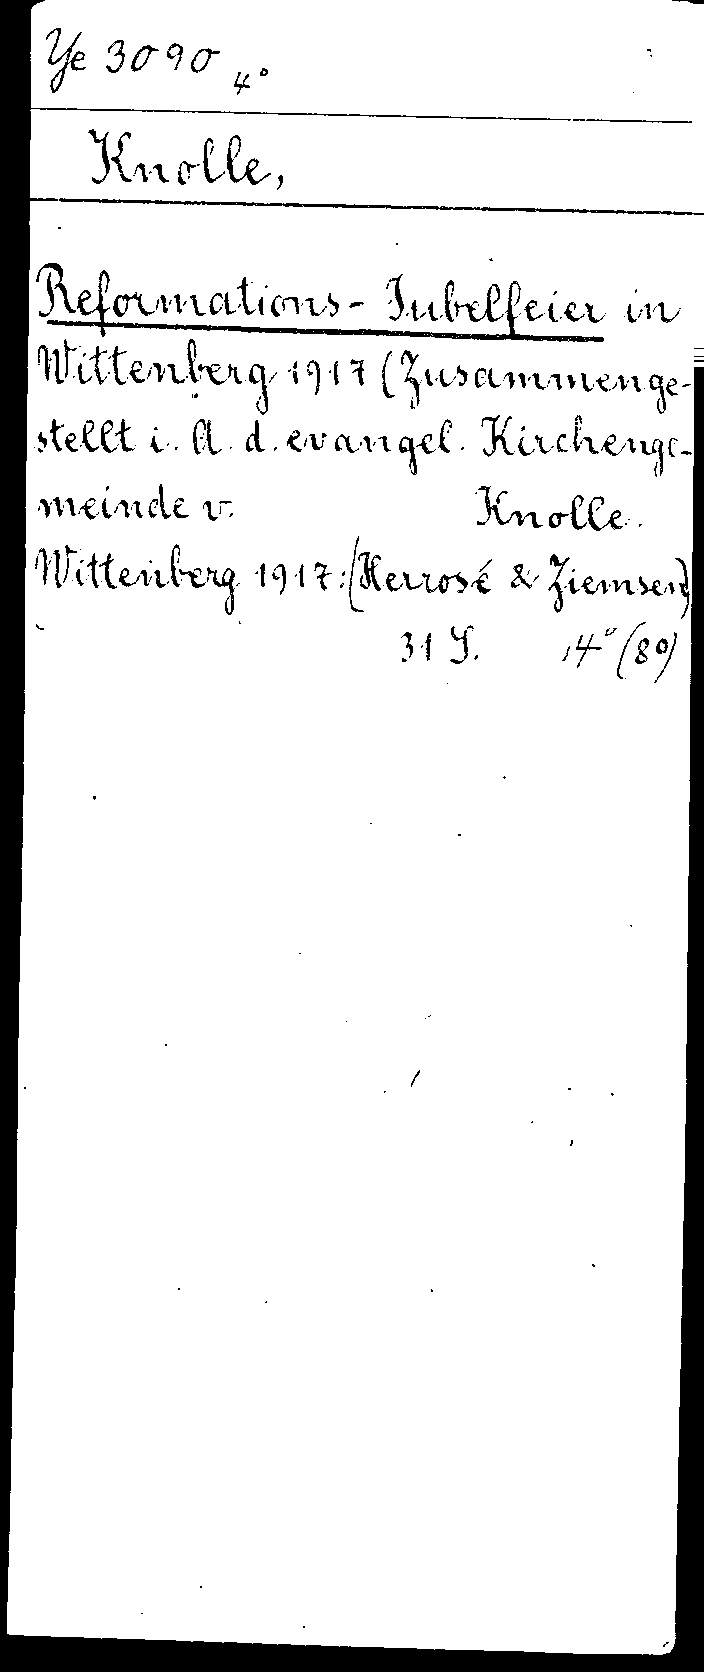 Ye 3090 4°
Knolle,
Reformations-Jubelfeier in
Wittenberg 1917 (Zusammenge-
stellt i. A. d. evangel. Kirchenge-
meinde v. Knolle.
Wittenberg 1917: (Herrosé & Ziemsen)
31 S. 4° (8°)